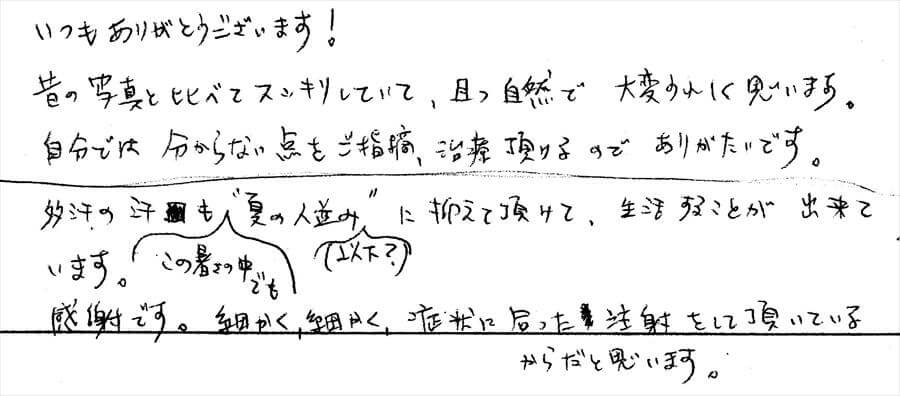 いつもありがとうございます!
昔の写真と比べてスッキリしていて、且つ自然で 大変うれしく思います。
自分では 分からない点をご指摘、治療頂けるので ありがたいです。
多汗の汗も "夏の人並み" に抑えて頂けて、生活することが 出来て
います。 この暑さの中でも (以下?)
感謝です。細かく、細かく、症状に合った注射をして頂いている
からだと思います。